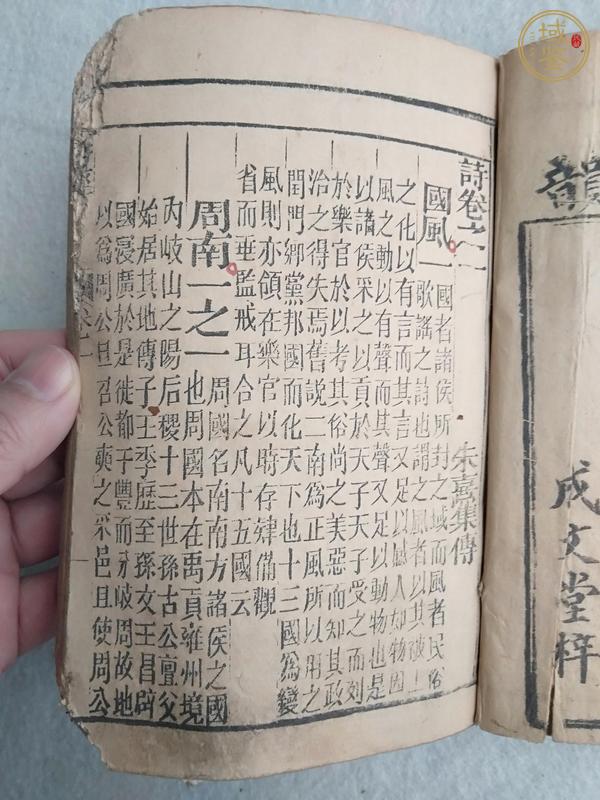 成文堂梓
詩卷之一
朱熹集傳
國風一 國者諸侯所封之域而風者民俗
歌謠之詩也謂之風者以其被上
之化以有言而其言又足以感人如物因
風之動以有聲而其聲又足以動物也是
以諸侯采之以貢於天子天子受之而列
於樂官於以考其俗尚之美惡而知其政
治之得失焉舊說二南爲正風所以用之
閨門鄉黨邦國而化天下也十三國爲變
風則亦領在樂官以時存肄備觀
省而垂監戒耳合之凡十五國云
周南一之一 周國名南南方諸侯之國
也周國本在禹貢雍州境
內岐山之陽后稷十三世孫古公亶父
始居其地傳子王季歷至孫文王昌辟
國寖廣於是徙都于豐而分岐周故地
以爲周公旦召公奭之采邑且使周公